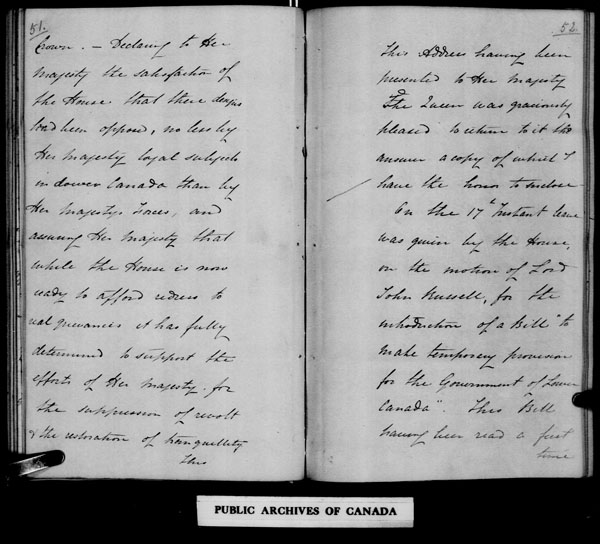 51.
Crown. — Declaring to Her
Majesty the satisfaction of
the House that these designs
had been opposed, no less by
Her Majesty loyal subjects
in Lower Canada than by
Her Majestys Forces, and
assuring Her Majesty that
while the House is now
ready to afford redress to
real grievances it has fully
determined to support the
efforts of Her Majesty for
the suppression of revolt
& the restoration of tranquillity
This
52
This Address having been
presented to Her Majesty
The Queen was graciously
pleased to return to it the
answer a copy of which I
have the honor to enclose
On the 17th Instant leave
was given by the House,
on the motion of Lord
John Russell, for the
introduction of a Bill "to
make temporary provision
for the Government of Lower
Canada". This Bill
having been read a first
time
PUBLIC ARCHIVES OF CANADA